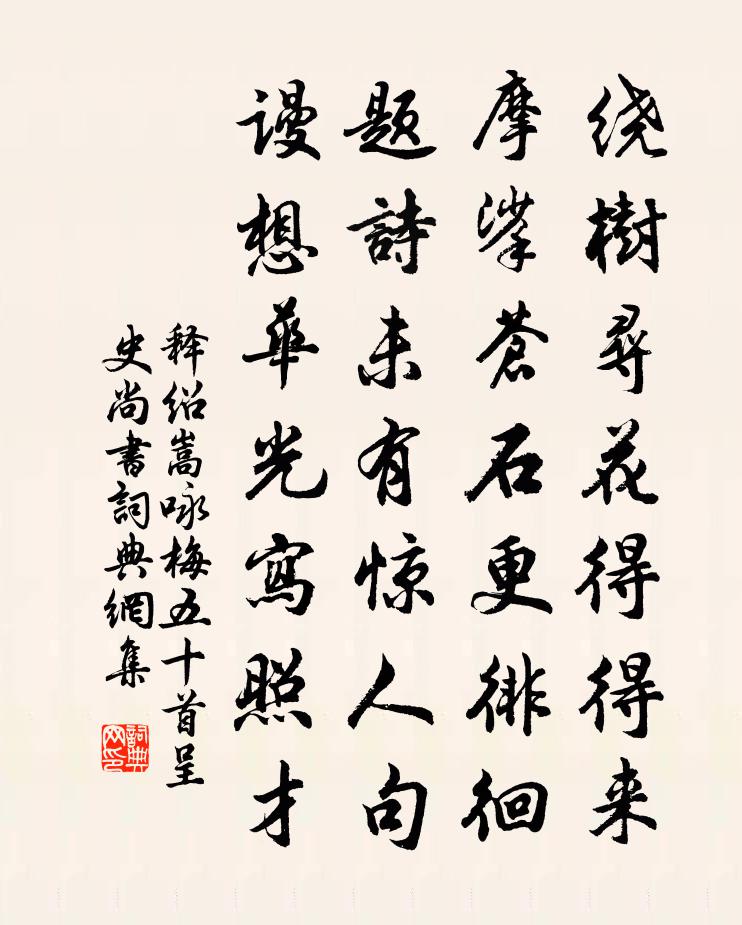 绕樹尋花得得来
摩挲苍石更徘徊
题詩未有惊人句
谩想华光寫照才
释绍嵩咏梅五十首呈
史尚書詞典網集
詞典网印